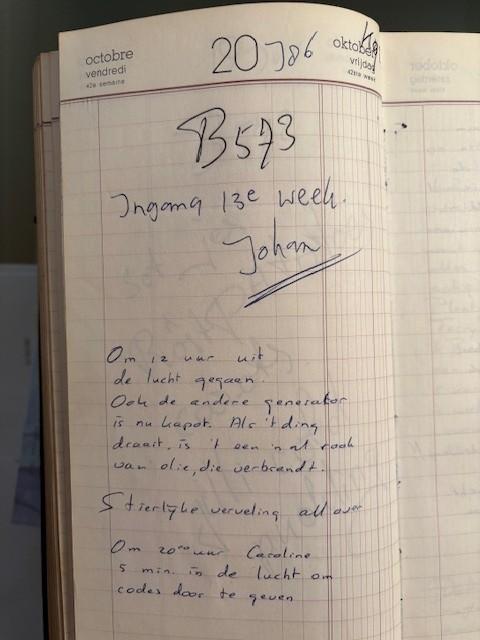 octobre
vendredi
42e semaine
20 J86
oktober
vrijdag
42ste week
B573
Ingang 13e week.
Johan
Om 12 uur uit
de lucht gegaan.
Ook de andere generator
is nu kapot. Als 't ding
draait, is 't een 'n al rook
van olie, die verbrandt.
Stierlijke verveling all over
Om 20ºº uur Caroline
5 min. in de lucht om
codes door te geven